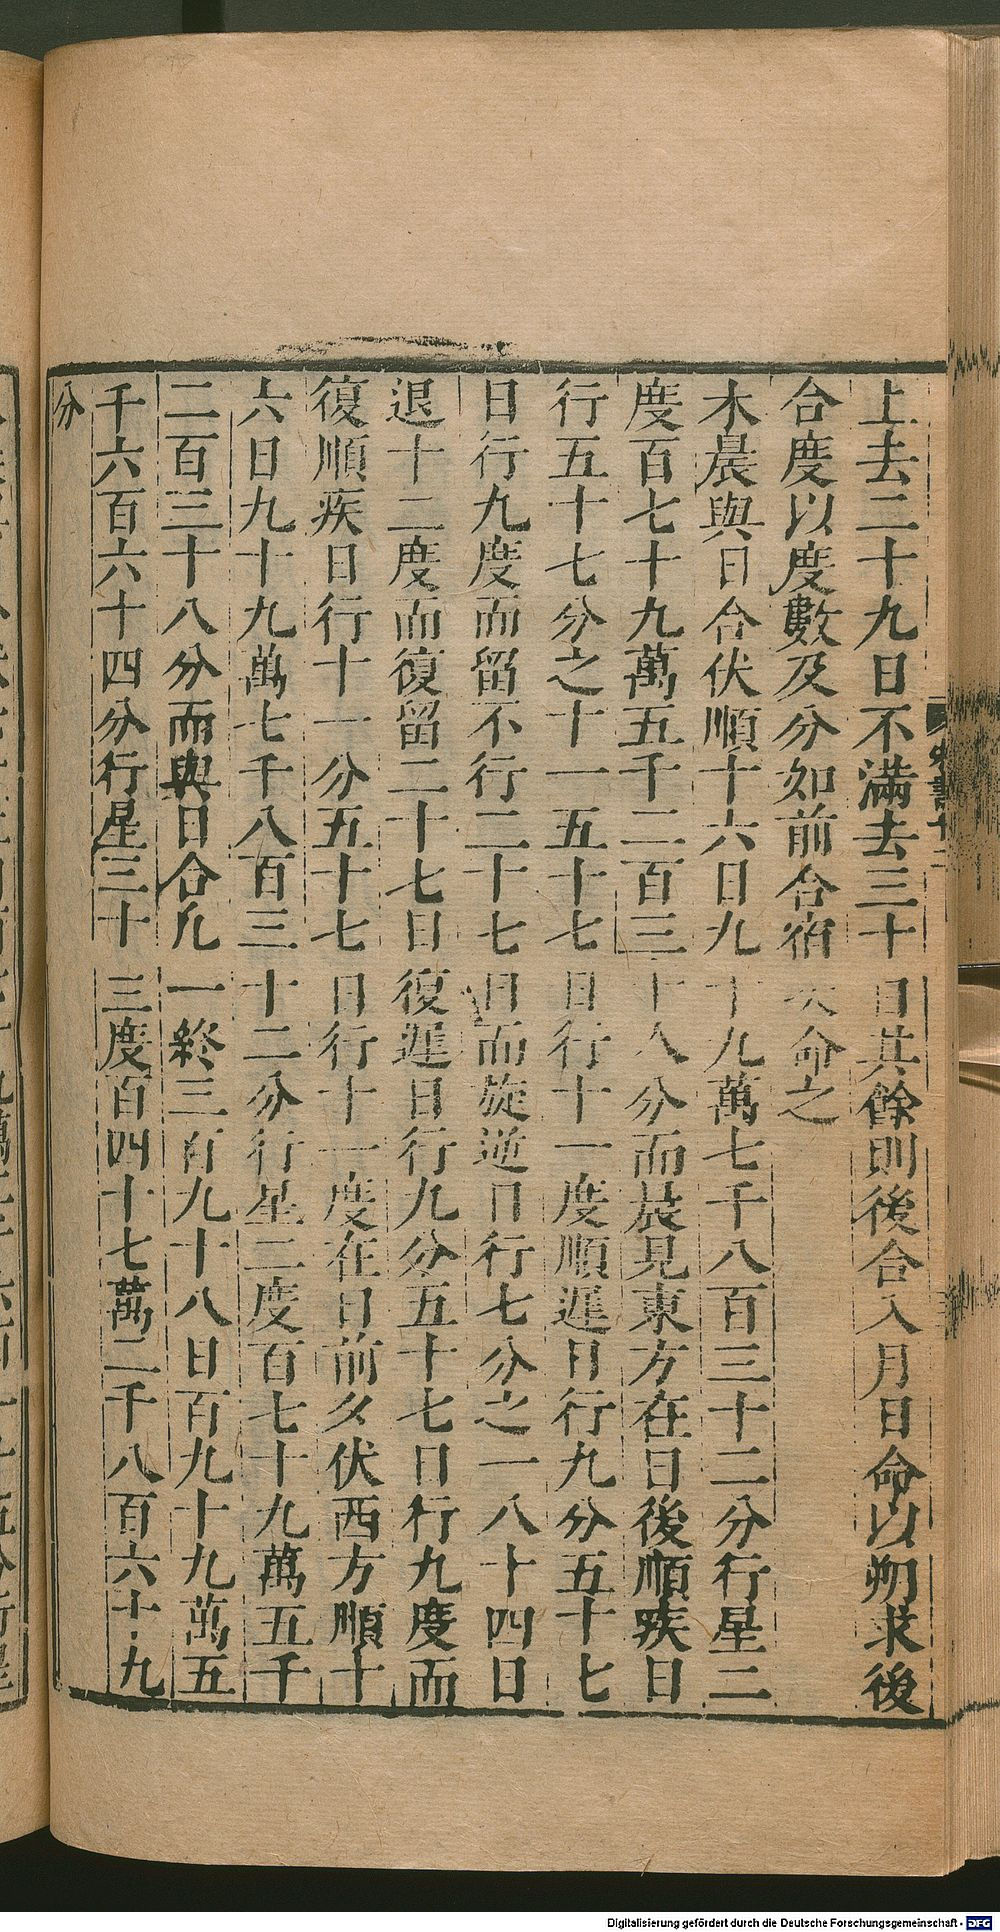 上去二十九日不滿去三十日其餘則後合入月日命以朔求後
合度以度數及分如前合宿次命之
木晨與日合伏順十六日九十九萬七千八百三十二分行星二
度百七十九萬五千二百三十八分而晨見東方在日後順疾日
行五十七分之十一五十七日行十一度順遲日行九分五十七
日行九度而留不行二十七日而旋逆日行七分之一八十四日
退十二度而復留二十七日復遲日行九分五十七日行九度而
復順疾日行十一分五十七日行十一度在日前夕伏西方順十
六日九十九萬七千八百三十二分行星二度百七十九萬五千
二百三十八分而與日合凡一終三百九十八日百九十九萬五
千六百六十四分行星三十三度百四十七萬二千八百六十九
分
Digitalisierung gefördert durch die Deutsche Forschungsgemeinschaft - DFG